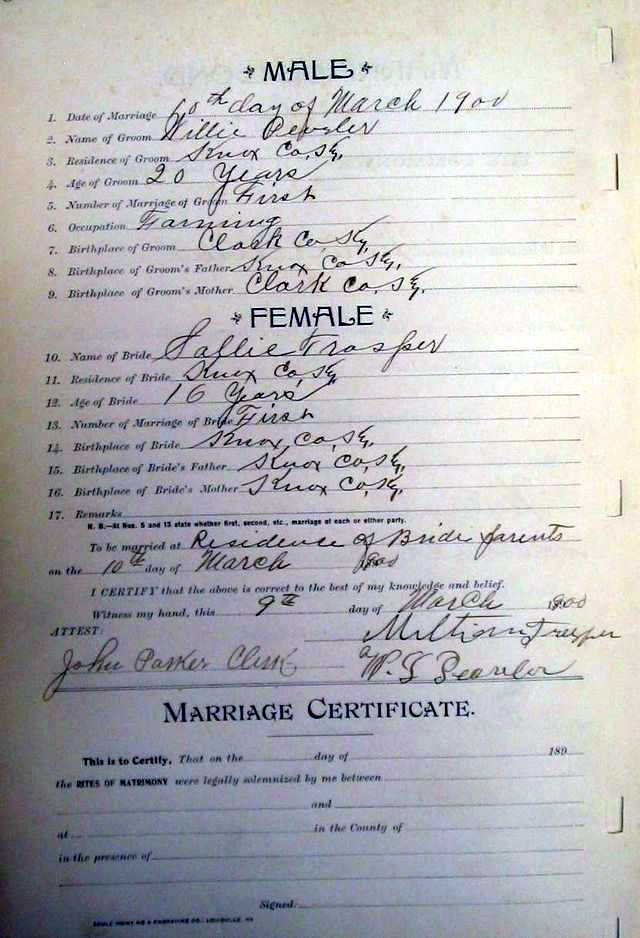 MALE
1. Date of Marriage 10th day of March 1900
2. Name of Groom Willie
3. Residence of Groom Knox Co, Ky,
4. Age of Groom 20 Years
5. Number of Marriage of Groom First
6. Occupation Farming
7. Birthplace of Groom Clark Co Ky,
8. Birthplace of Groom's Father Knox Co Ky,
9. Birthplace of Groom's Mother Clark Co, Ky,
FEMALE
10. Name of Bride Sallie Trosper
11. Residence of Bride Knox Co, Ky
12. Age of Bride 16 Years
13. Number of Marriage of Bride First
14. Birthplace of Bride Knox Co, Ky,
15. Birthplace of Bride's Father Knox Co, Ky,
16. Birthplace of Bride's Mother Knox Co, Ky,
17. Remarks
N. B.—At Nos. 5 and 13 state whether first, second, etc., marriage of each or either party.
To be married at Residence of Bride parents
on the 10th day of March 1900
I CERTIFY that the above is correct to the best of my knowledge and belief.
Witness my hand, this 9th day of March 1900
ATTEST:
John Parker Clerk
MARRIAGE CERTIFICATE.
This is to Certify, That on the day of 189
the RITES OF MATRIMONY were legally solemnized by me between
and
at in the County of
in the presence of
Signed: